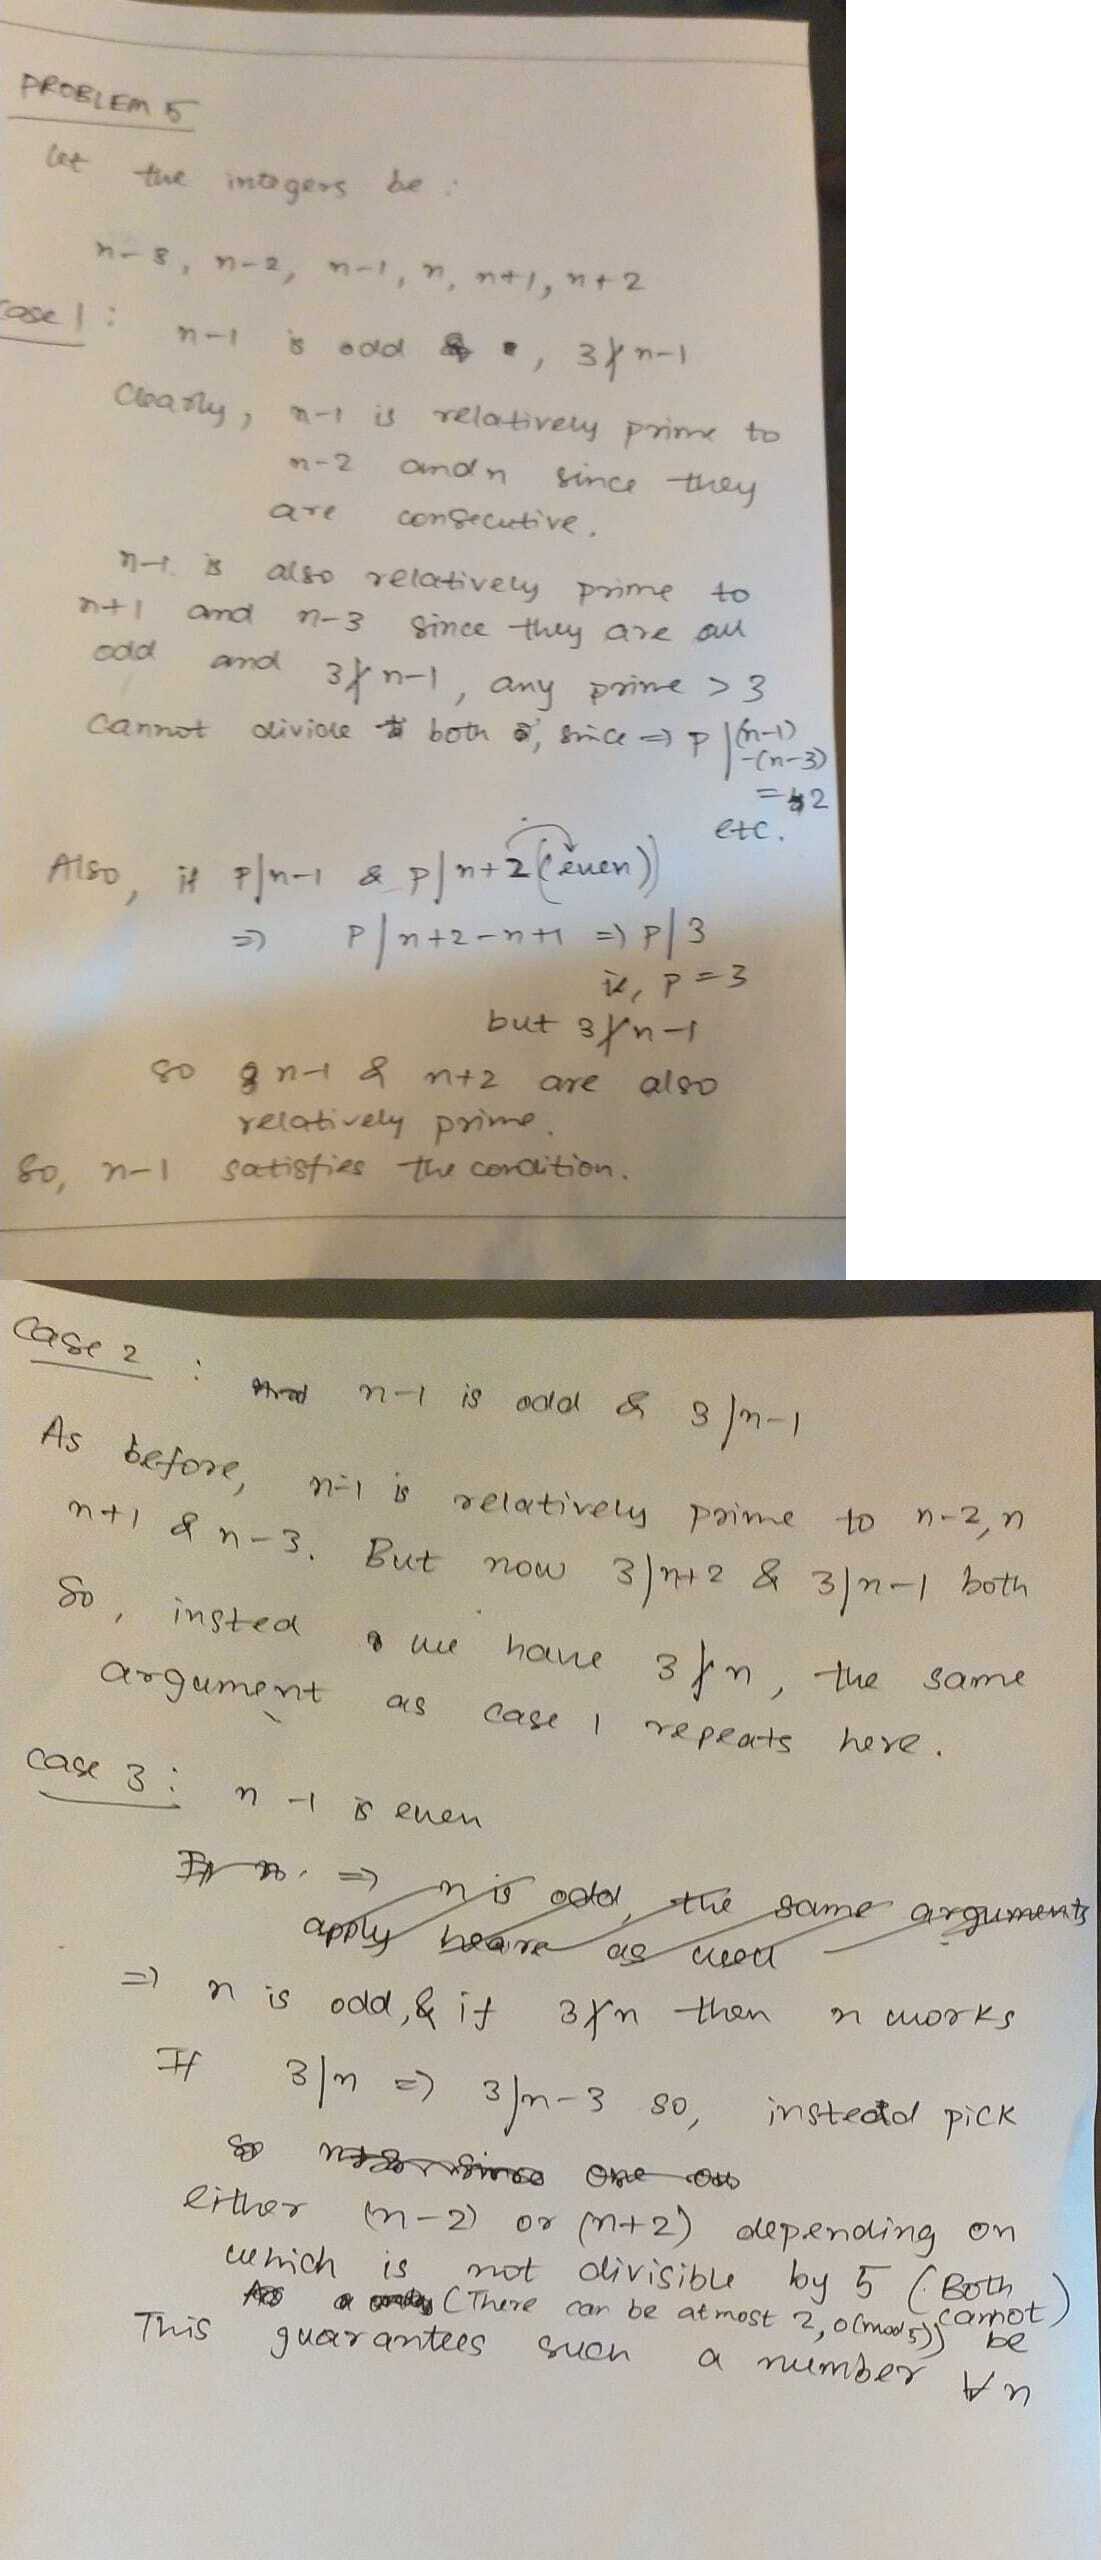 PROBLEM 5
Let the integers be :
n-3, n-2, n-1, n, n+1, n+2
case 1 : n-1 is odd , 3∤n-1
Clearly, n-1 is relatively prime to
n-2 and n since they
are consecutive.
n-1 is also relatively prime to
n+1 and n-3 since they are all
odd and 3∤n-1, any prime > 3
cannot divide both , since ⇒ p | (n-1)
-(n-3)
= 2
etc.
Also, if p|n-1 & p|n+2 (even)
⇒ p | n+2-n+1 ⇒ p|3
ie, p = 3
but 3∤n-1
so n-1 & n+2 are also
relatively prime.
So, n-1 satisfies the condition.
case 2 : n-1 is odd & 3|n-1
As before, n-1 is relatively prime to n-2, n
n+1 & n-3. But now 3|n+2 & 3|n-1 both
So, insted we have 3∤n, the same
argument as case 1 repeats here.
case 3 : n-1 is even
⇒ n is odd, the same arguments
apply heare as well
⇒ n is odd, & if 3∤n then n works
If 3|n ⇒ 3|n-3 so, instead pick
either (n-2) or (n+2) depending on
which is not divisible by 5 (Both
cannot)
be
(There can be atmost 2, 0(mod 5))
This guarantees such a number ∀ n